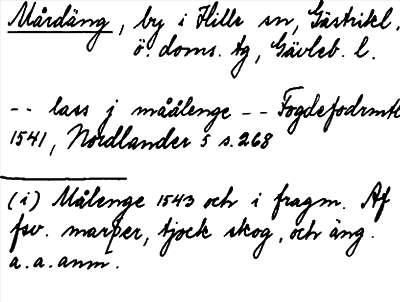 Mårdäng, by i Hille sn, Gästrikl.
ö. doms. tg, Gävleb. l.
-- lass j måålenge -- Fogdefodrmtl
1541, Nordlander 5 s. 268
(i) Målenge 1543 och i fragm. Af
fsv. marþer, tjock skog, och äng.
a. a. anm.